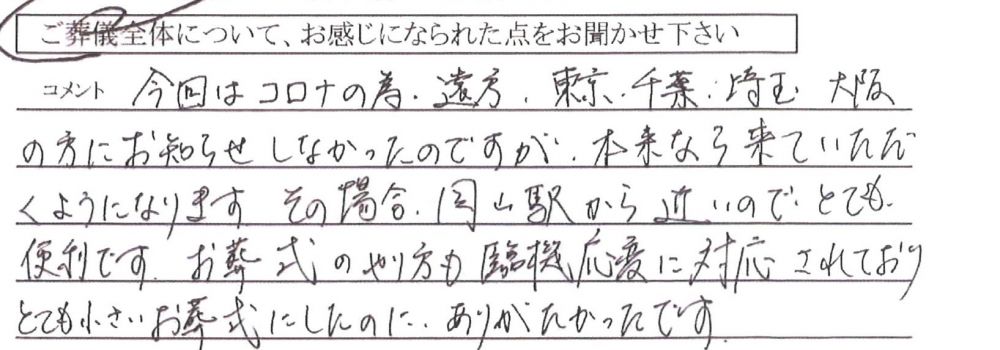 ご葬儀全体について、お感じになられた点をお聞かせ下さい
コメント 今回はコロナの為、遠方、東京、千葉、埼玉 大阪
の方にお知らせしなかったのですが、本来なら来ていただ
くようになります その場合、岡山駅から近いので、とても
便利です。お葬式のやり方も臨機応変に対応されており
とても小さいお葬式にしたのに、ありがたかったです